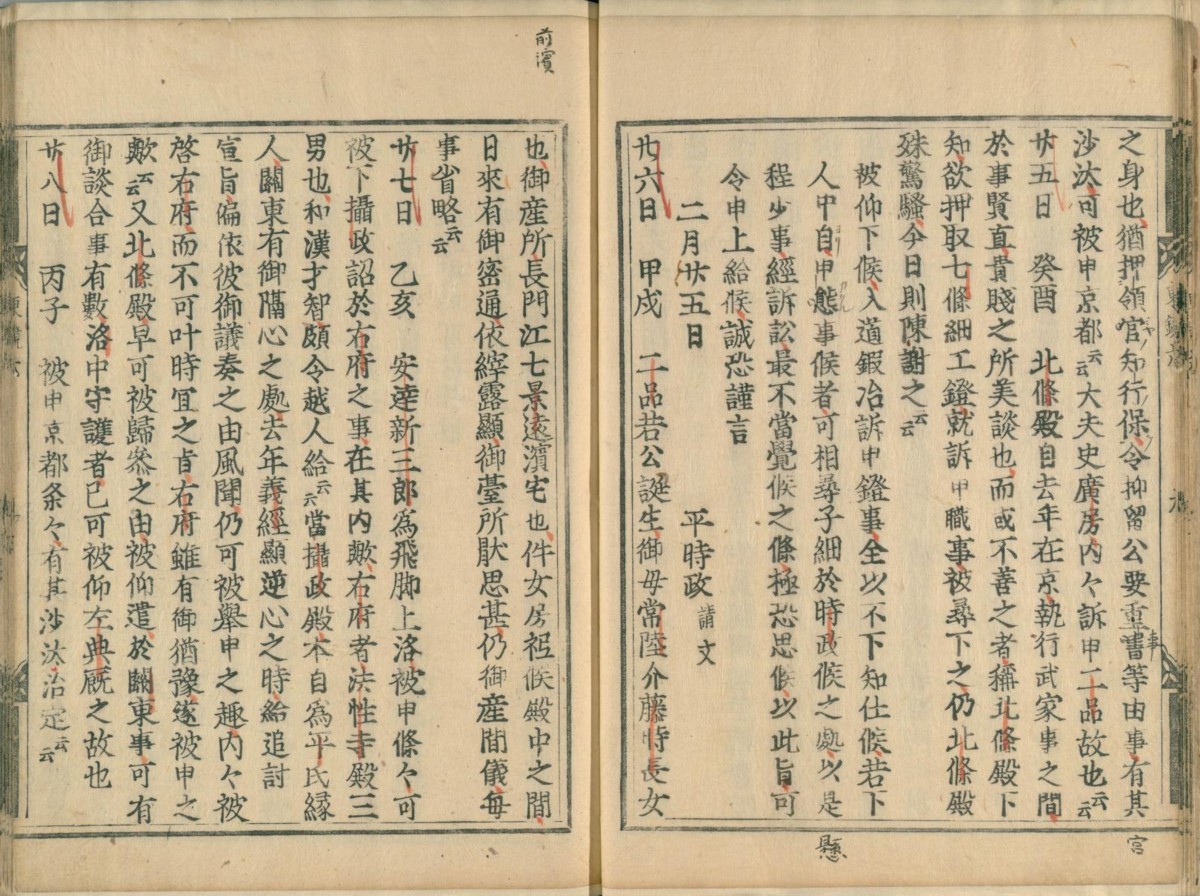 之身也猶押領官知行保令抑留公要重書等由事有其
沙汰可被申京都云云大夫史廣房内々訴申二品故也云云
廿五日　癸酉　北條殿自去年在京執行武家事之間
於事賢直貴賤之所美談也而或不善之者稱北條殿下
知欲押取七條細工鐙就訴申職事被尋下之仍北條殿
殊驚騷今日則陳謝之云云
被仰下候入道鍛冶訴申鐙事全以不下知仕候若下
人中自由態事候者可相尋子細於時政候之處以是
程少事經訴訟最不當覺候之條極恐思候以此旨可
令申上給候誠恐謹言
二月廿五日　平時政請文
廿六日　甲戌　二品若公誕生御母常陸介藤時長女
也御産所長門江七景遠濱宅也件女房祗候殿中之間
日來有御密通依縡露顯御臺所猒思甚仍御産間儀毎
事省略云云
廿七日　乙亥　安達新三郎爲飛脚上洛被申條々可
被下攝政詔於右府之事在其内歟右府者法性寺殿三
男也和漢才智頗令越人給云云當攝政殿本自爲平氏縁
人關東有御隔心之處去年義經顯逆心之時給追討
宣旨偏依彼御議奏之由風聞仍可被擧申之趣内々被
啓右府而不可叶時宜之旨右府雖有御猶豫遂被申之
歟云云又北條殿早可被歸參之由被仰遣於關東事可有
御談合事有數洛中守護者已可被仰左典厩之故也
廿八日　丙子　被申京都条々有其沙汰治定云云
前濱
事
宮
懸